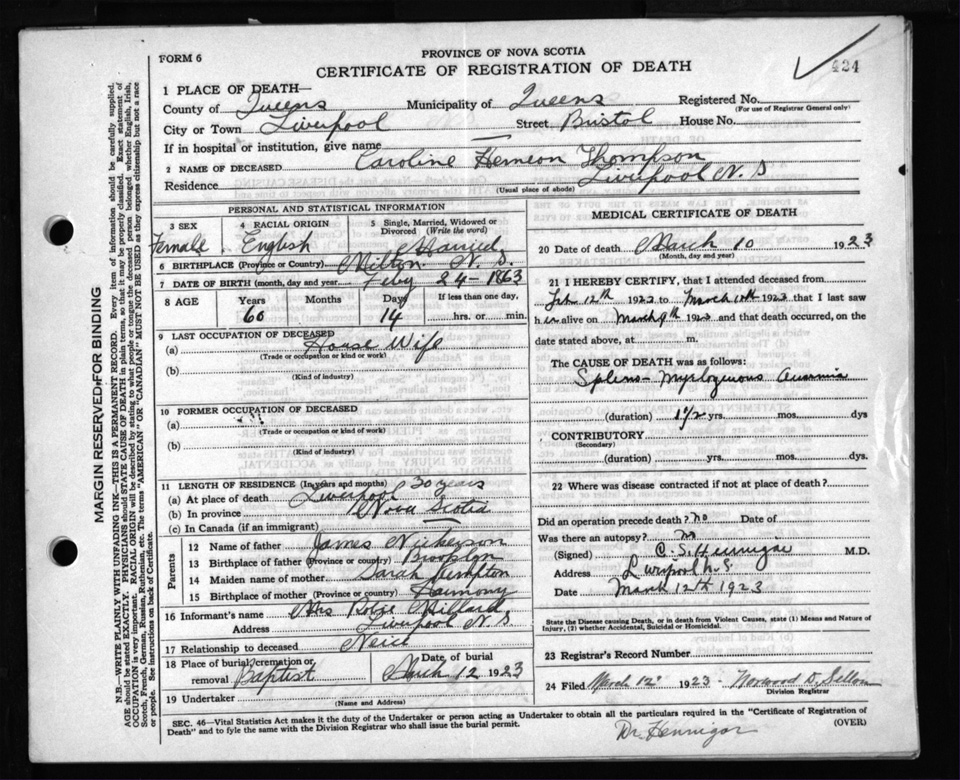 PROVINCE OF NOVA SCOTIA
FORM 6
CERTIFICATE OF REGISTRATION OF DEATH
424
1 PLACE OF DEATH—
County of Queens Municipality of Queens Registered No.
(For use of Registrar General only)
City or Town Liverpool Street Bristol House No.
If in hospital or institution, give name —
2 NAME OF DECEASED Caroline Hemeon Thompson
Residence Liverpool N. S
(Usual place of abode)
PERSONAL AND STATISTICAL INFORMATION
3 SEX 4 RACIAL ORIGIN 5 Single, Married, Widowed or Divorced (Write the word)
Female English Married
6 BIRTHPLACE (Province or Country) Milton N. S.
7 DATE OF BIRTH (month, day and year) Feby 24-1863
8 AGE Years Months Days If less than one day,
60 14 hrs. or min.
9 LAST OCCUPATION OF DECEASED
(a) House Wife
(Trade or occupation or kind or work)
(b)
(Kind of industry)
10 FORMER OCCUPATION OF DECEASED
(a)
(Trade or occupation or kind of work)
(b)
(Kind of industry)
11 LENGTH OF RESIDENCE (In years and months) 30 years
(a) At place of death Liverpool
(b) In province Nova Scotia
(c) In Canada (if an immigrant) —
Parents
12 Name of father James Nickerson
13 Birthplace of father (Province or country) Brooklyn
14 Maiden name of mother Sarah
15 Birthplace of mother (Province or Country) Harmony
16 Informant's name Mrs Millard
Address Liverpool N S
17 Relationship to deceased Neice
18 Place of burial, cremation or removal Baptist Date of burial March 12 1923
19 Undertaker
(Name and Address)
MEDICAL CERTIFICATE OF DEATH
20 Date of death March 10 1923
(Month, day and year)
21 I HEREBY CERTIFY, that I attended deceased from
Feb 12th 1923 to March 10th 1923 that I last saw
her alive on March 9th 1923 and that death occurred, on the
date stated above, at m.
The CAUSE OF DEATH was as follows:
Spleno-Myelogenous Anaemia
(duration) 1 1/2 yrs. mos. dys
CONTRIBUTORY
(Secondary)
(duration) yrs. mos. dys.
22 Where was disease contracted if not at place of death?
Did an operation precede death? no Date of
Was there an autopsy? no
(Signed) C. S. Hennigar M.D.
Address Liverpool N.S.
Date March 12th 1923
State the Disease causing Death, or in death from Violent Causes, state (1) Means and Nature of Injury, (2) whether Accidental, Suicidal or Homicidal.
23 Registrar's Record Number
24 Filed March 12 1923 Norwood D.
Division Registrar
SEC. 46—Vital Statistics Act makes it the duty of the Undertaker or person acting as Undertaker to obtain all the particulars required in the "Certificate of Registration of
Death" and to fyle the same with the Division Registrar who shall issue the burial permit. (OVER)
Dr Hennigar
MARGIN RESERVED FOR BINDING
N.B.—WRITE PLAINLY WITH UNFADING INK—THIS IS A PERMANENT RECORD. Every item of information should be carefully supplied.
AGE should be stated EXACTLY. PHYSICIANS should STATE CAUSE OF DEATH in plain terms, so that it may be properly classified. Exact statement of
OCCUPATION is very important. RACIAL ORIGIN will be described by stating to what people or tongue the deceased person belonged, whether English, Irish,
Scotch, French, German, Russian, Ruthenian, etc. The terms "AMERICAN" OR "CANADIAN" MUST NOT BE USED as they express citizenship but not a race
or people. See instructions on back of Certificate.